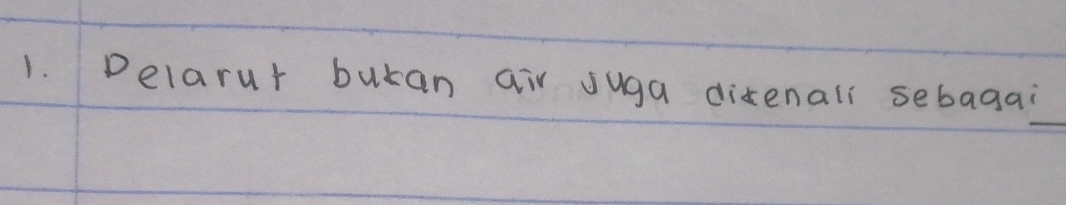 1. Pelarut bukan air juga dikenali sebagai __